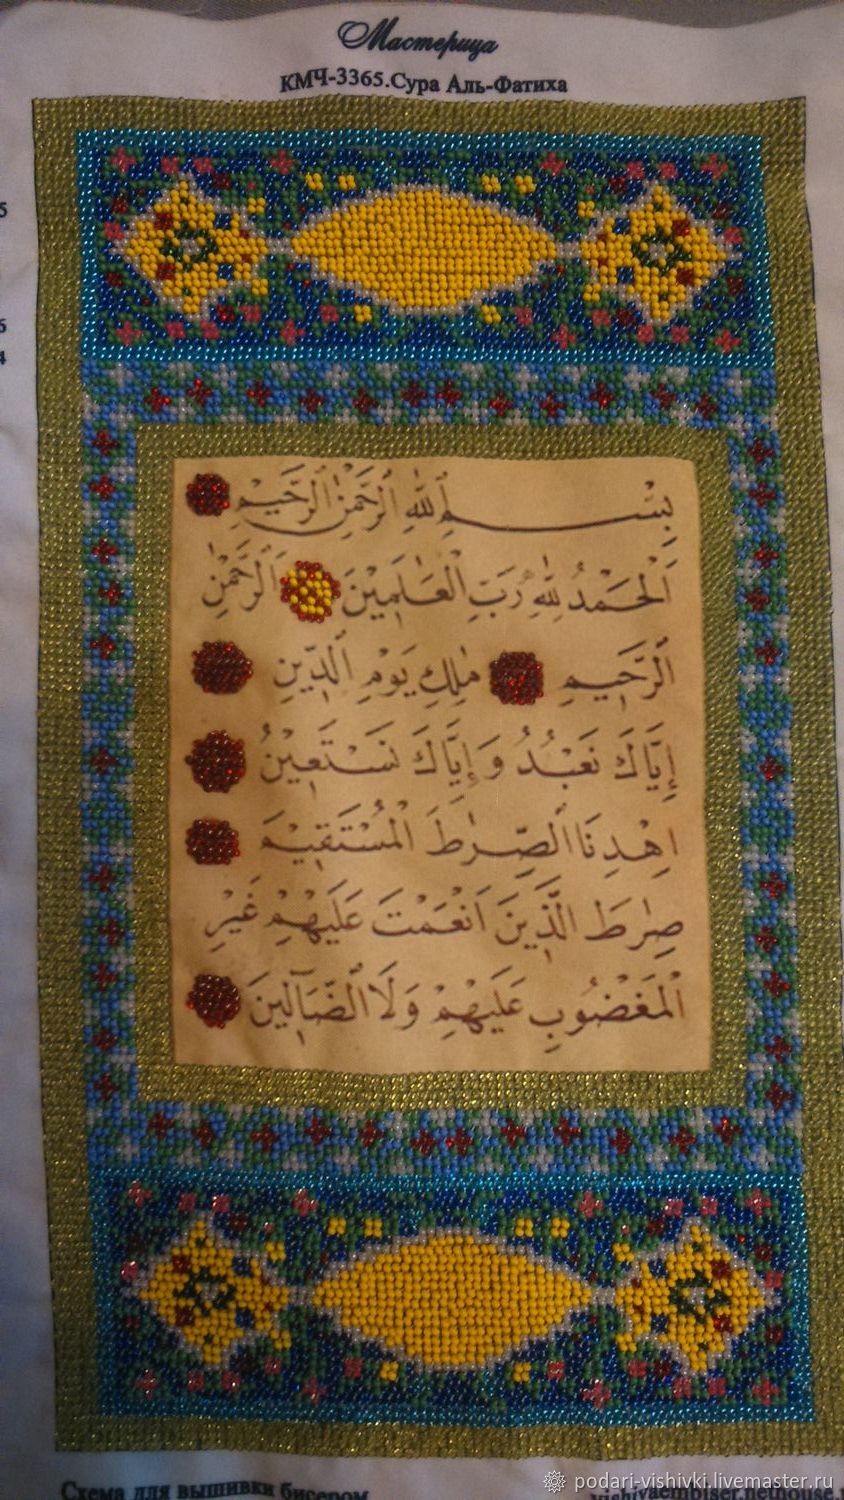 Мастерица
КМЧ-3365.Сура Аль-Фатиха
بِسْمِ ٱللَّهِ ٱلرَّحْمٰنِ ٱلرَّحِيمِ
اَلْحَمْدُ لِلّٰهِ رَبِّ الْعَالَمِينَ اَلرَّحْمٰنِ
ٱلرَّحِيمِ مٰلِكِ يَوْمِ ٱلدِّينِ
إِيَّاكَ نَعْبُدُ وَإِيَّاكَ نَسْتَعِينُ
اِهْدِنَا الصِّرٰطَ الْمُسْتَقِيمَ
صِرٰطَ الَّذِينَ اَنْعَمْتَ عَلَيْهِمْ غَيْرِ
الْمَغْضُوبِ عَلَيْهِمْ وَلَا الضَّآلِّينَ
Схема для вышивки бисером
podari-vishivki.livemaster.ru